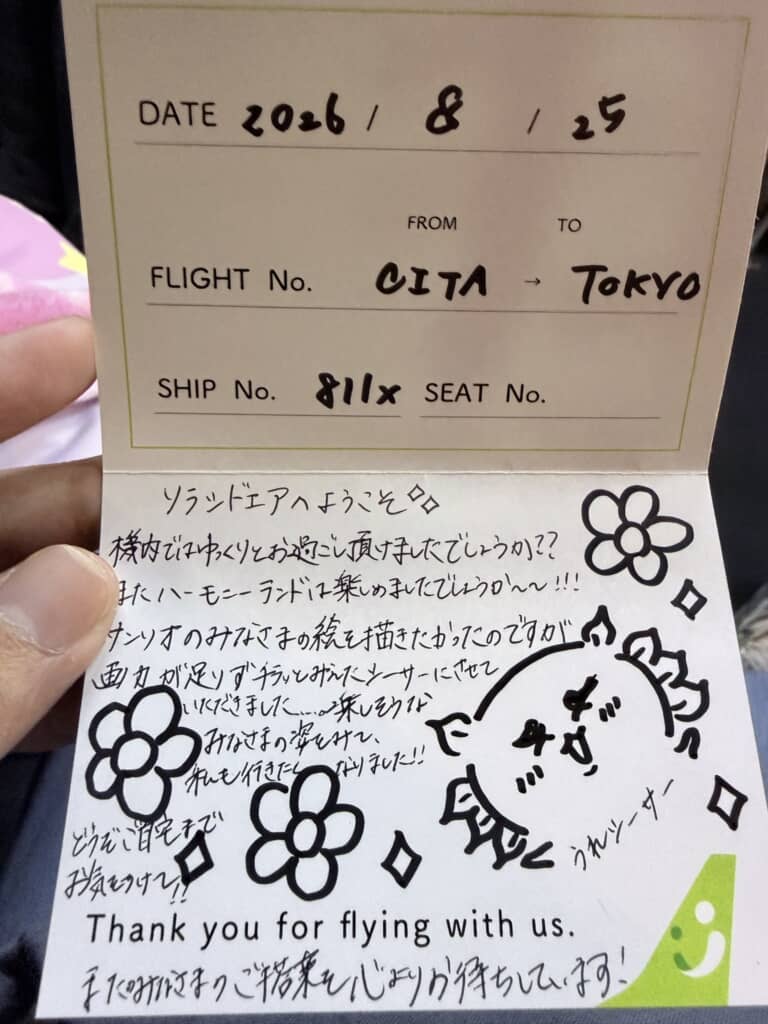 DATE 2026 / 8 / 25
FROM TO
FLIGHT No. OITA → TOKYO
SHIP No. 811x SEAT No.
ソラシドエアへようこそ
機内ではゆっくりとお過ごし頂けましたでしょうか??
またハーモニーランドは楽しめましたでしょうか〜〜!!!
サンリオのみなさまの絵を描きたかったのですが
画力が足りずチラッとみえたシーサーにさせて
いただきました.... 楽しそうな
みなさまの姿をみて、
私も行きたくなりました!!
うれシーサー
どうぞご自宅まで
お気をつけて!!
Thank you for flying with us.
またみなさまのご搭乗を心よりお待ちしています!